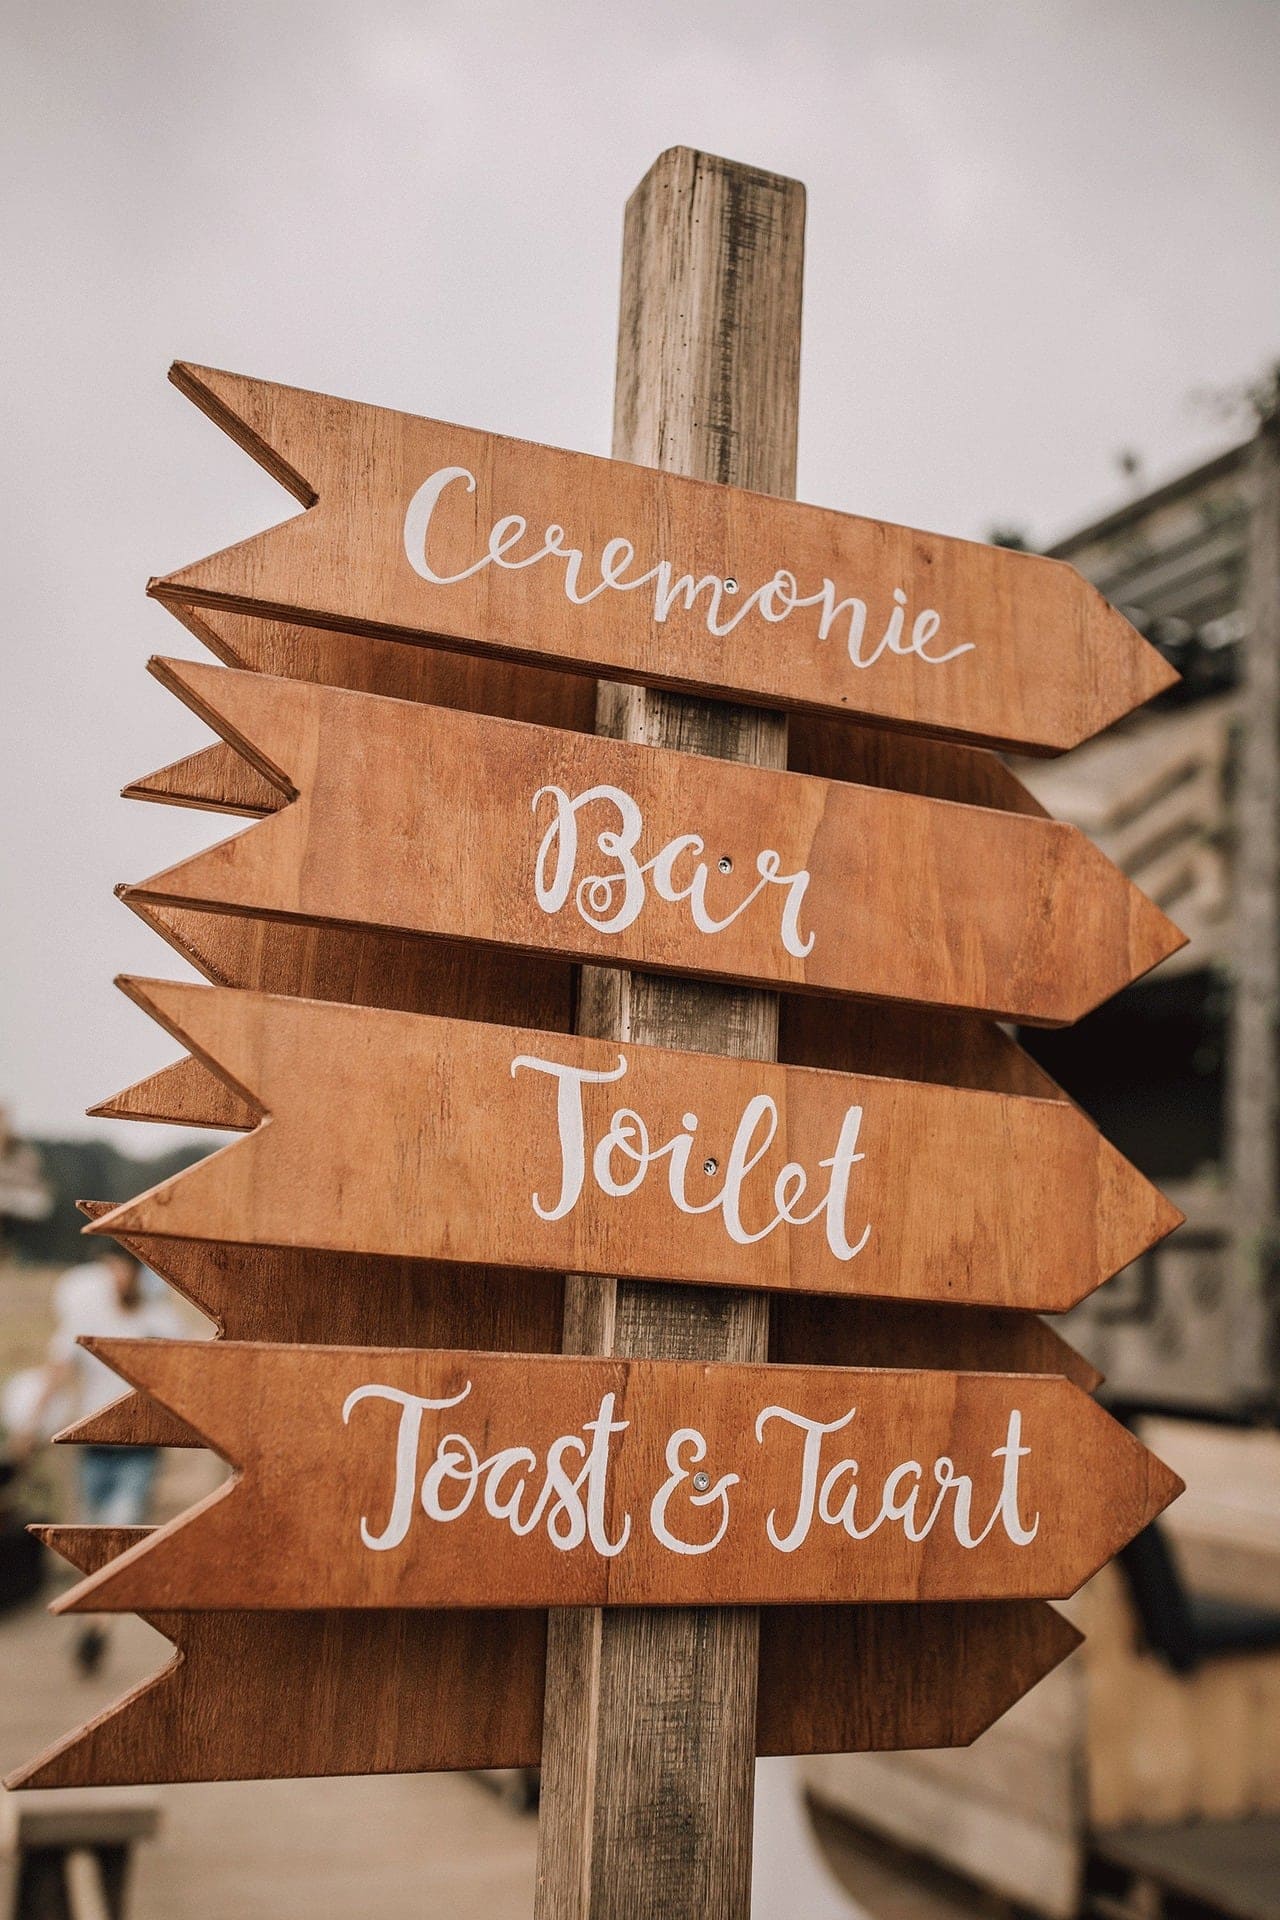 Ceremonie
Bar
Toilet
Toast & Taart